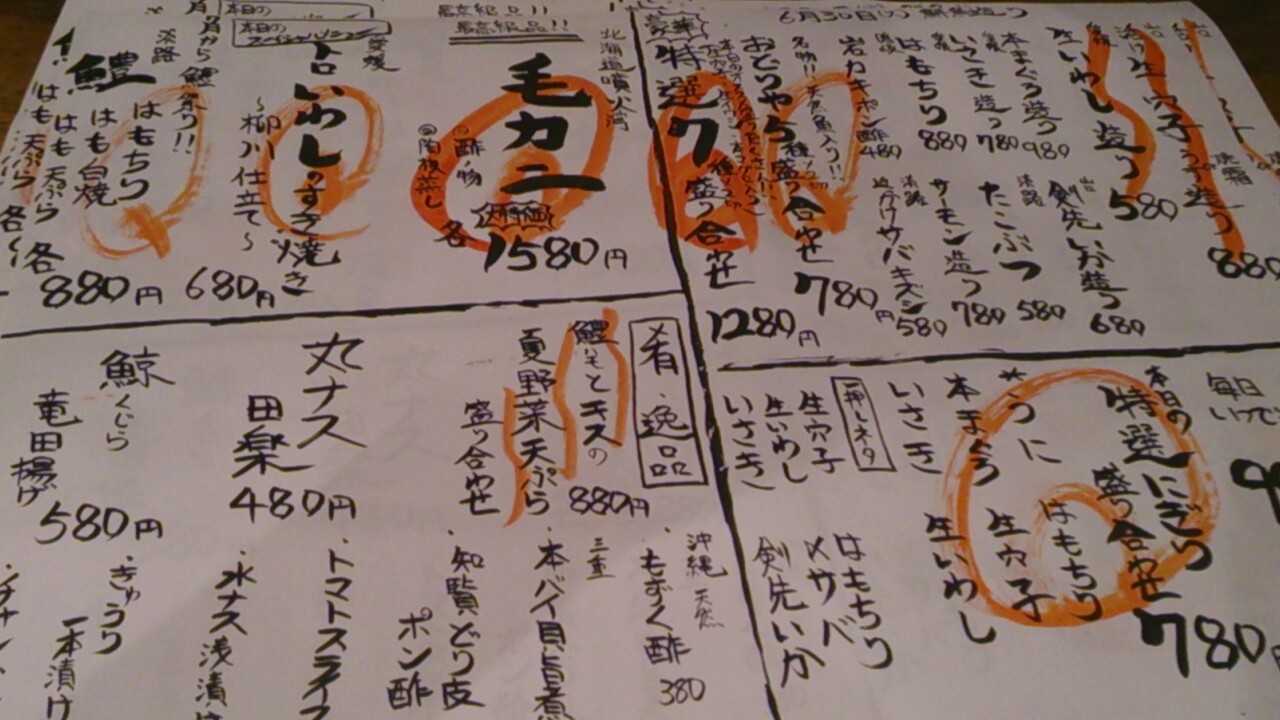 6月30日(火)
造り
生穴子
造り
880
生いわし造り
580
本まぐろ造り
980
いさき造り
780
はもちり
880
岩カキポン酢
480
剣先いか造り
680
淡路
たこぶつ
580
サーモン造り
780
キズシ
580
名物!!天然魚入り!!
おどりゃち
盛り合わせ
780円
豪華
特選
盛り合わせ
1280円
最高級品!!
最高級品!!
北海道噴火湾
毛カニ
大特価
◎酢ノ物
◎陶板蒸し
各
1580円
本日の
本日の
愛媛
トロいわしのすき焼き
〜柳川仕立て〜
680円
月から
鱧祭り!!
淡路
鱧
はもちり
はも白焼
はも天ぷら
各
880円
はも天ぷら
各
毎日
本日の
特選にぎり
盛り合わせ
780円
うに
はもちり
本まぐろ
生穴子
いさき
生いわし
一押しネタ
生穴子
生いわし
いさき
はもちり
〆サバ
剣先いか
肴・逸品
鱧とキスの
夏野菜天ぷら
盛り合わせ
880円
丸ナス
田楽
480円
鯨
くじら
竜田揚げ
580円
沖縄 天然
・もずく酢
380
三重
・本バイ貝旨煮
・知覧どり皮
ポン酢
・トマトスライス
・水ナス浅漬け
・きゅうり
一本漬け